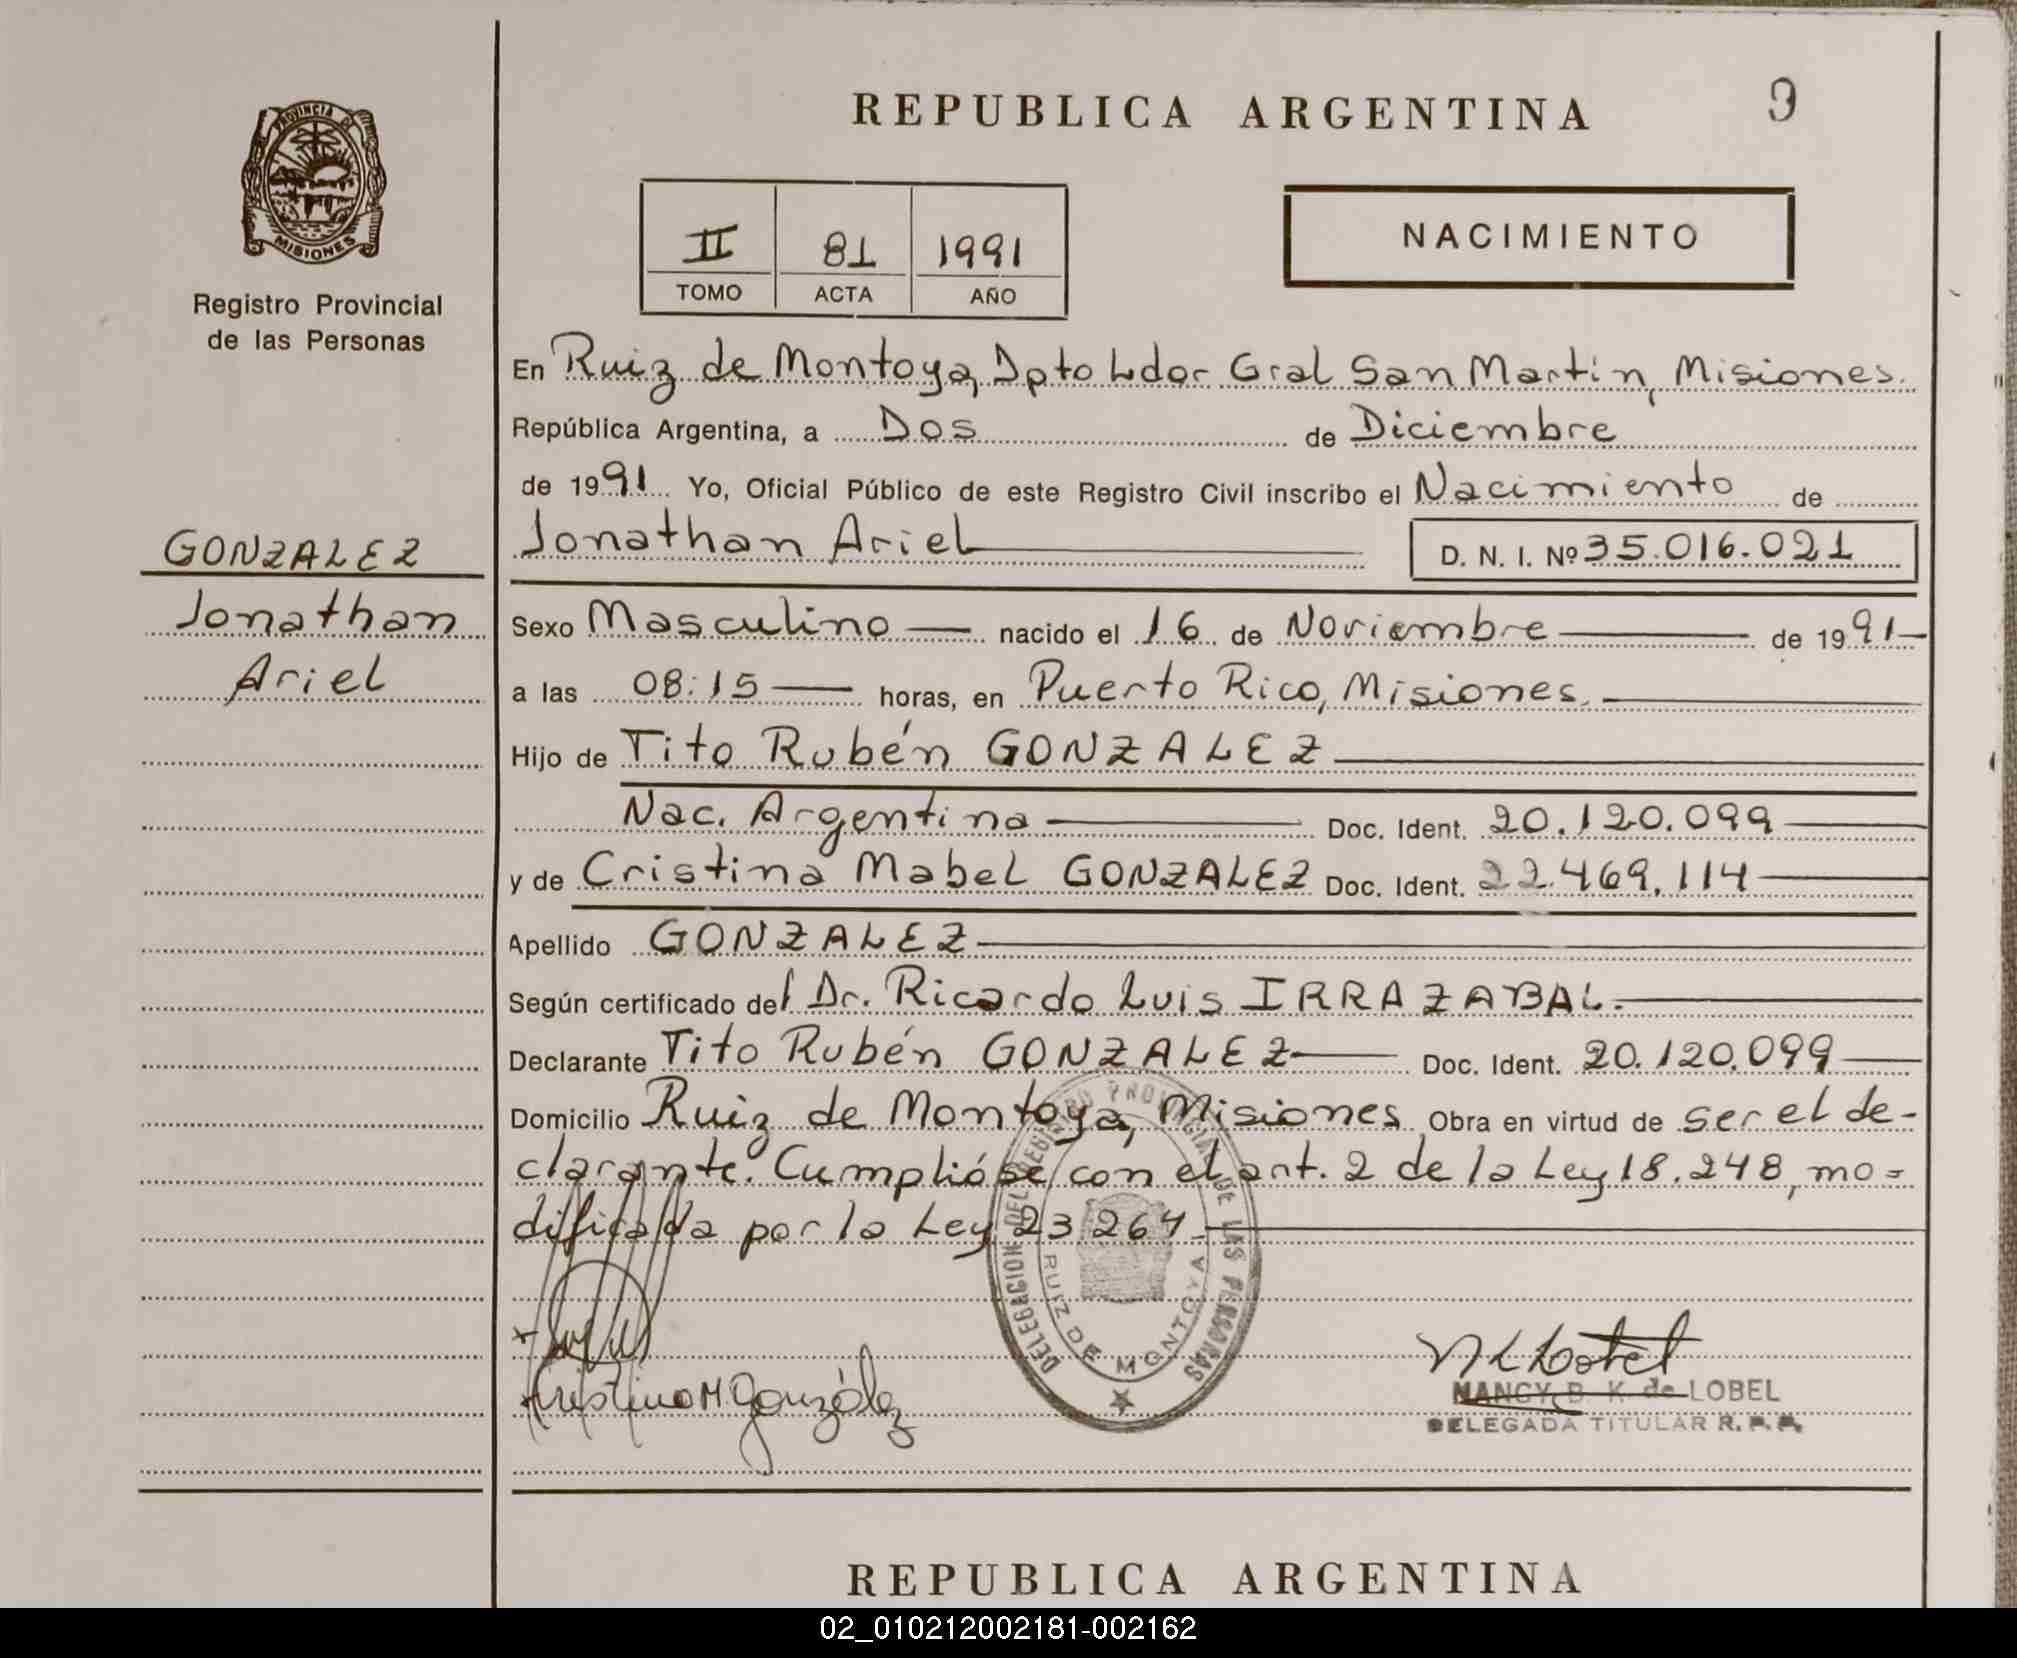 REPUBLICA ARGENTINA
9
PROVINCIA DE
MISIONES
Registro Provincial
de las Personas
II 81 1991
TOMO ACTA AÑO
NACIMIENTO
En Ruiz de Montoya, Dpto Ldor Gral San Martín, Misiones.
República Argentina, a Dos de Diciembre
de 1991 Yo, Oficial Público de este Registro Civil inscribo el Nacimiento de
Jonathan Ariel D. N. I. Nº 35.016.021
GONZALEZ
Jonathan
Ariel
Sexo Masculino nacido el 16 de Noviembre de 1991
a las 08:15 horas, en Puerto Rico, Misiones.
Hijo de Tito Rubén GONZALEZ
Nac. Argentina Doc. Ident. 20.120.099
y de Cristina Mabel GONZALEZ Doc. Ident. 22.469.114
Apellido GONZALEZ
Según certificado del Dr. Ricardo Luis IRRAZABAL.
Declarante Tito Rubén GONZALEZ Doc. Ident. 20.120.099
Domicilio Ruiz de Montoya, Misiones Obra en virtud de ser el de-
clarante. Cumplióse con el art. 2 de la Ley 18.248, mo=
dificada por la Ley 23.264.
DELEGACION DEL REGISTRO PROVINCIAL DE LAS PERSONAS
RUIZ DE MONTOYA
Cristina M. González
NANCY B. K. de LOBEL
DELEGADA TITULAR R. P. P.
REPUBLICA ARGENTINA
02_010212002181-002162